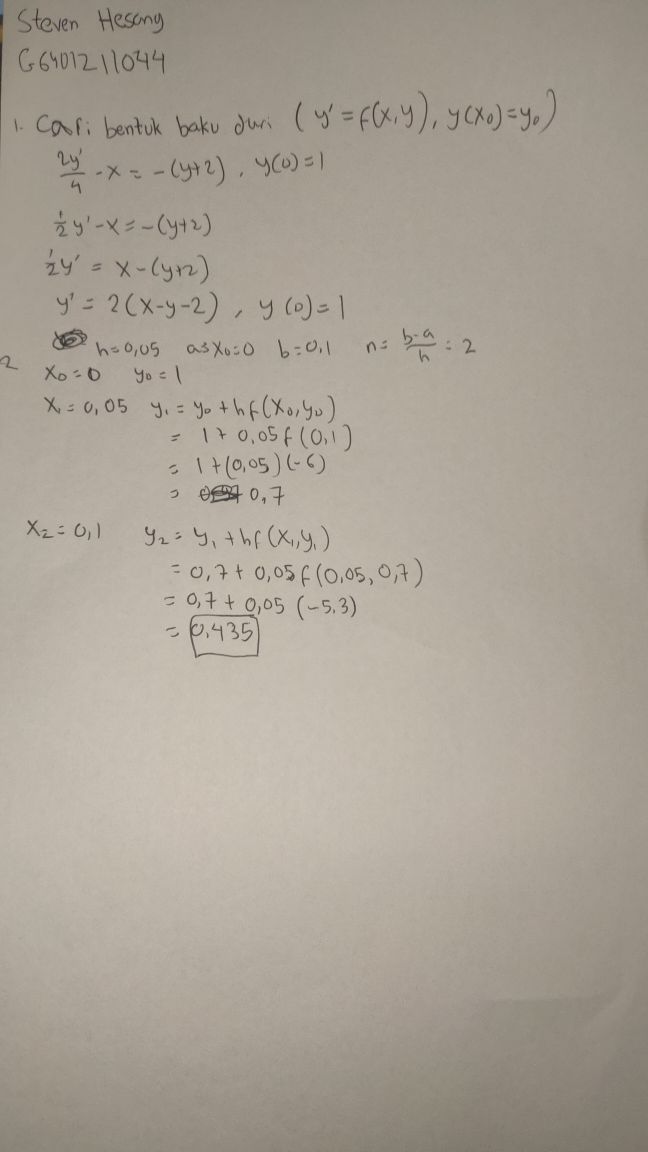 Steven Hesang
G6401211044
1. Cari bentuk baku dari ( y' = f(x,y), y(x₀)=y₀)
2y'/4 -x = -(y+2), y(0)=1
1/2 y' - x = -(y+2)
1/2 y' = x-(y+2)
y' = 2(x-y-2), y(0)=1
h=0,05 a=x₀=0 b=0,1 n= b-a/h = 2
2 x₀=0 y₀=1
x₁=0,05 y₁ = y₀ + hf(x₀,y₀)
= 1+ 0,05f(0,1)
= 1+(0,05)(-6)
= 0,7
x₂=0,1 y₂ = y₁ + hf(x₁,y₁)
= 0,7+ 0,05f(0,05, 0,7)
= 0,7+ 0,05 (-5,3)
= 0,435